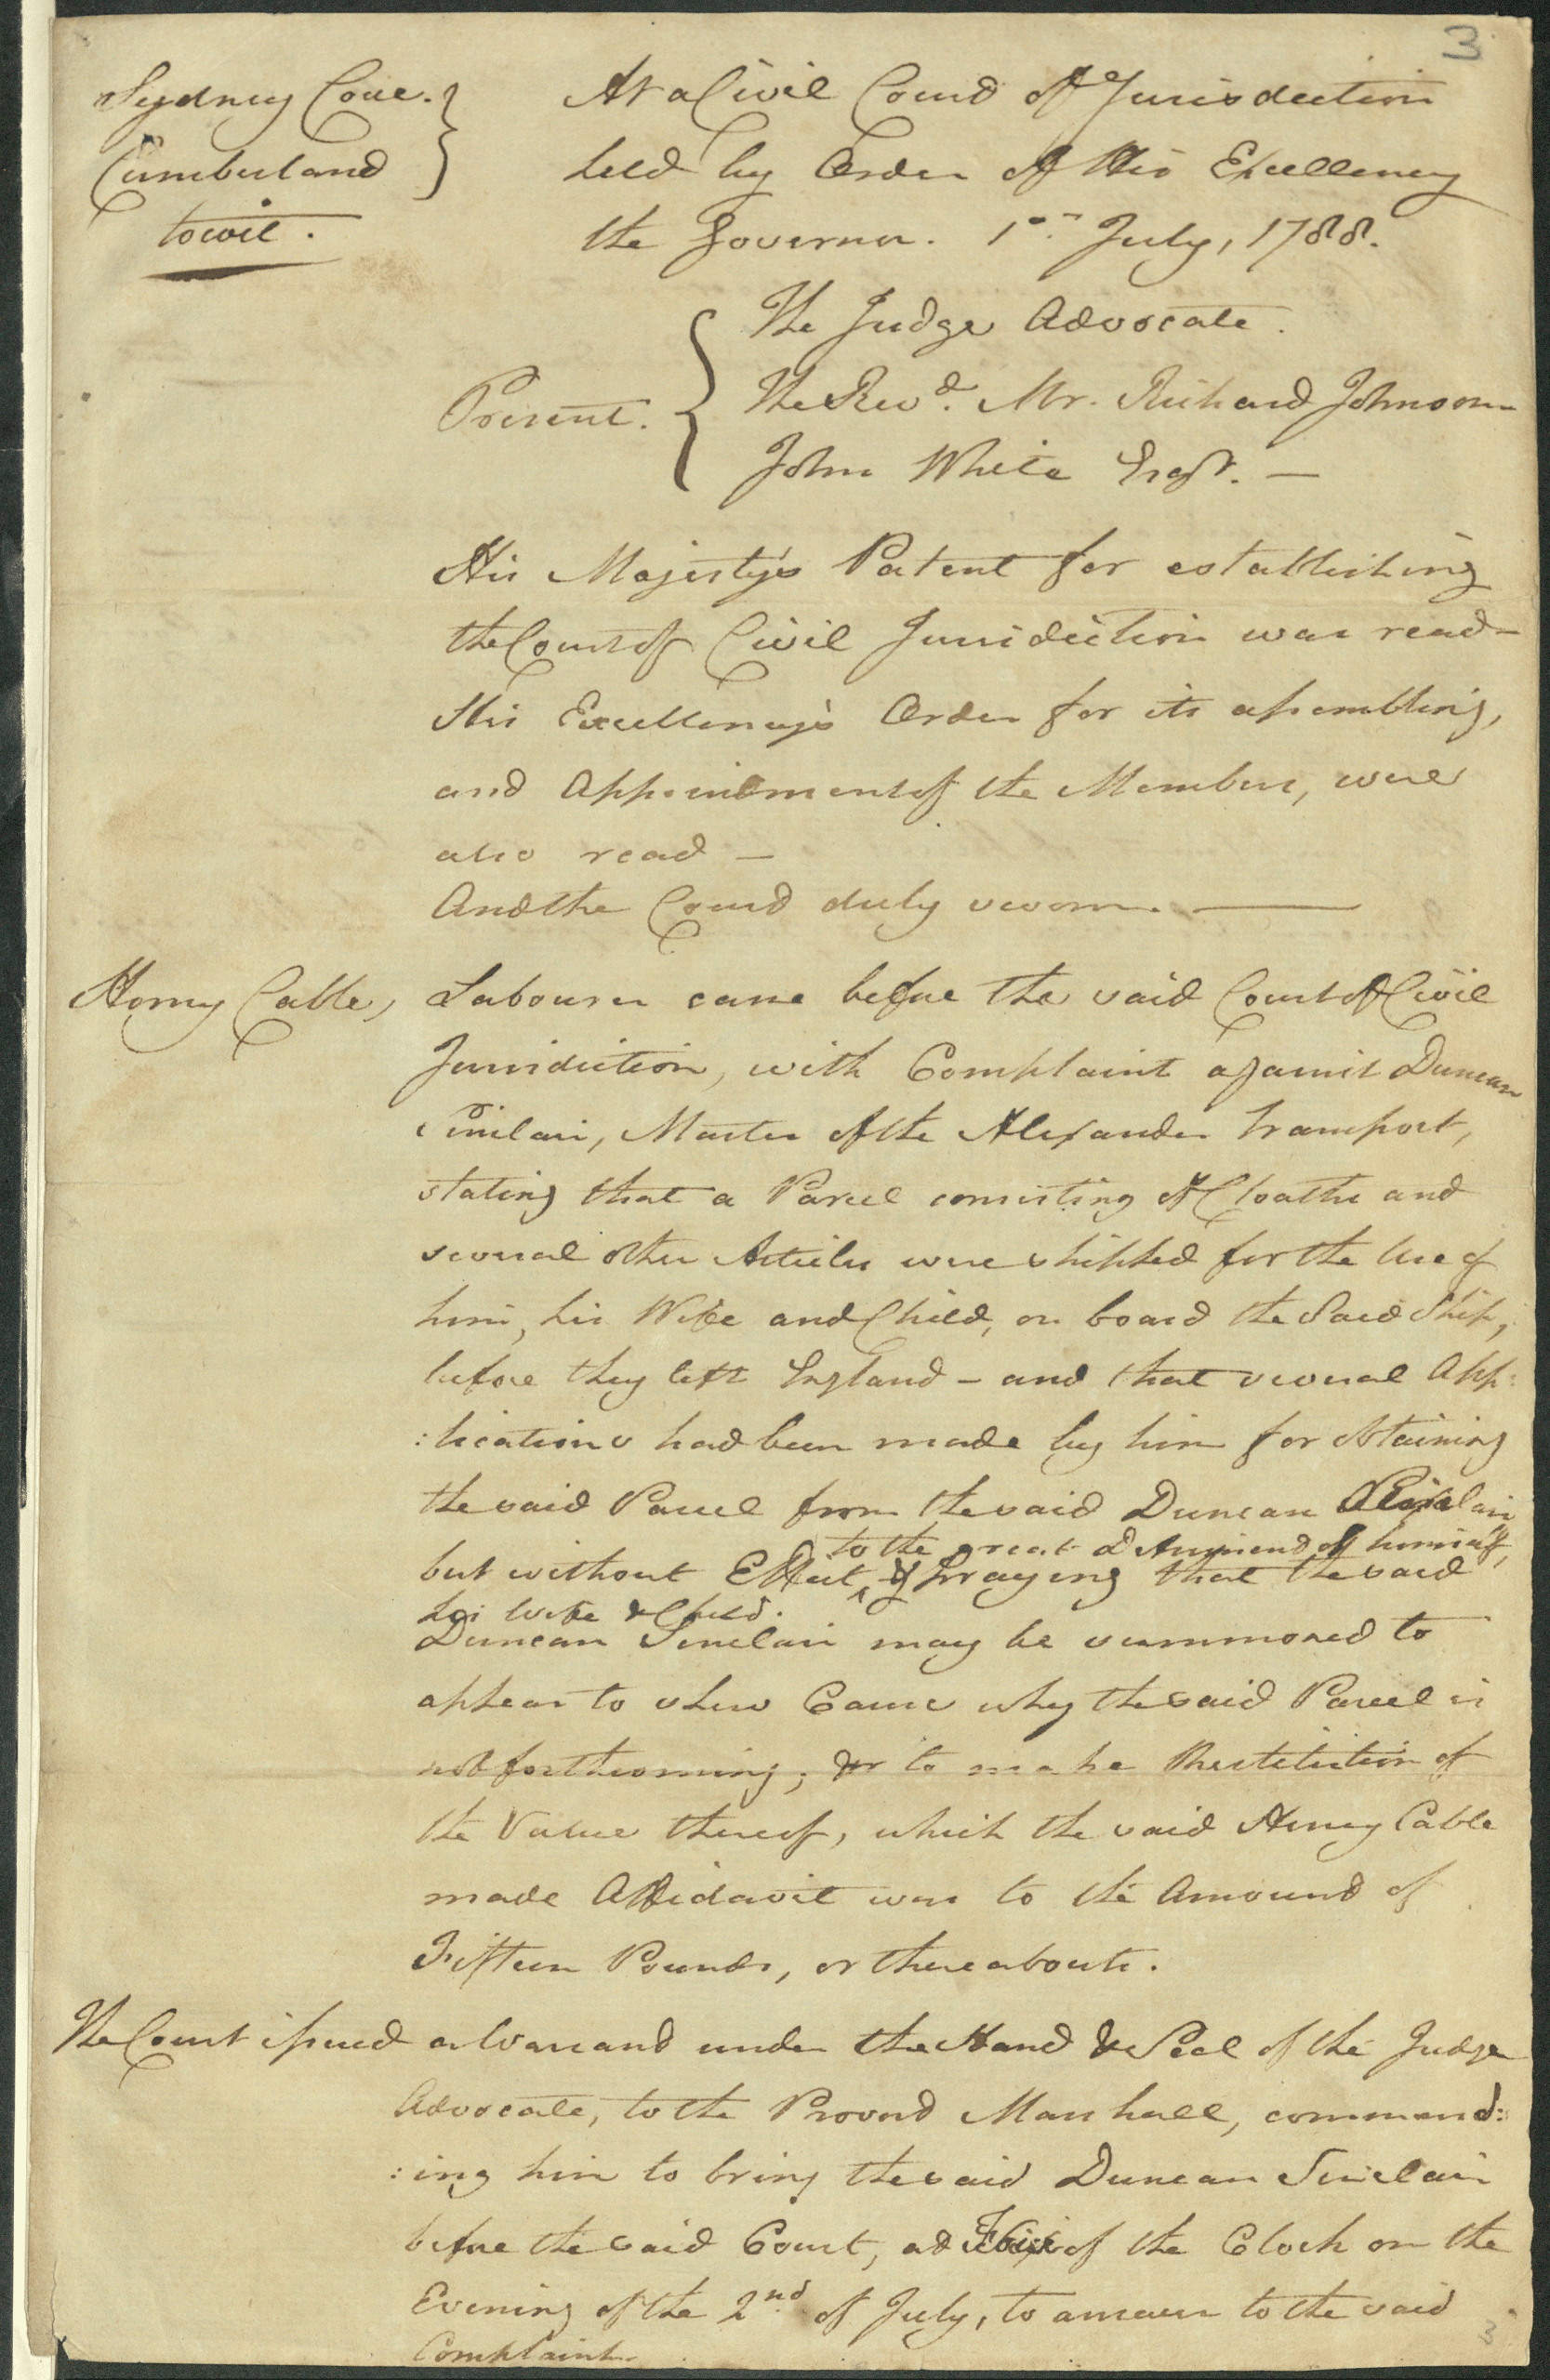 3
Sydney Cove.
Cumberland
to wit.
At a Civil Court of Jurisdiction
held by Order of His Excellency
the Governor. 1st July, 1788.
Present.
The Judge Advocate.
The Revd. Mr. Richard Johnson
John White Esqr. —
His Majesty's Patent for establishing
the Court of Civil Jurisdiction was read—
His Excellency's Order for its assembling,
and Appointment of the Members, were
also read —
And the Court duly sworn. —
Henry Cable, Labourer came before the said Court of Civil
Jurisdiction, with Complaint against Duncan
Sinclair, Master of the Alexander Transport,
stating that a Parcel consisting of Cloaths and
several other Articles were shipped for the Use of
him, his Wife and Child, on board the said Ship,
before they left England — and that several App:
:lications had been made by him for obtaining
the said Parcel from the said Duncan Sinclair
to the great Detriment of himself,
but without Effect, & praying that the said
his Wife & Child.
Duncan Sinclair may be summoned to
appear to shew Cause why the said Parcel is
not forthcoming; or to make Restitution of
the Value thereof, which the said Henry Cable
made Affidavit was to the Amount of
Fifteen Pounds, or thereabouts.
The Court issued a Warrant under the Hand & Seal of the Judge
Advocate, to the Provost Marshall, command:
:ing him to bring the said Duncan Sinclair
before the said Court, at of the Clock on the
Evening of the 2nd of July, to answer to the said
Complaint.
3